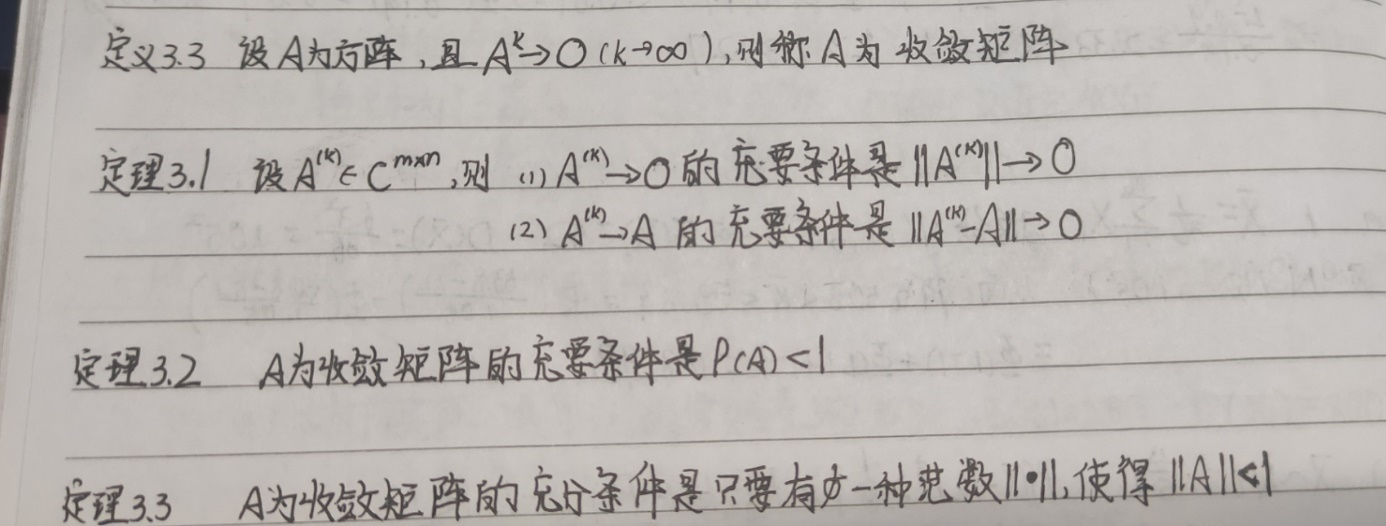 定义3.3 设A为方阵,且A^k→O(k→∞),则称A为收敛矩阵
定理3.1 设A^(k)∈C^m×n,则 (1) A^(k)→O的充要条件是||A^(k)||→0
(2) A^(k)→A 的充要条件是||A^(k)-A||→0
定理3.2 A为收敛矩阵的充要条件是ρ(A)<1
定理3.3 A为收敛矩阵的充分条件是只要有一种范数||•||,使得||A||<1